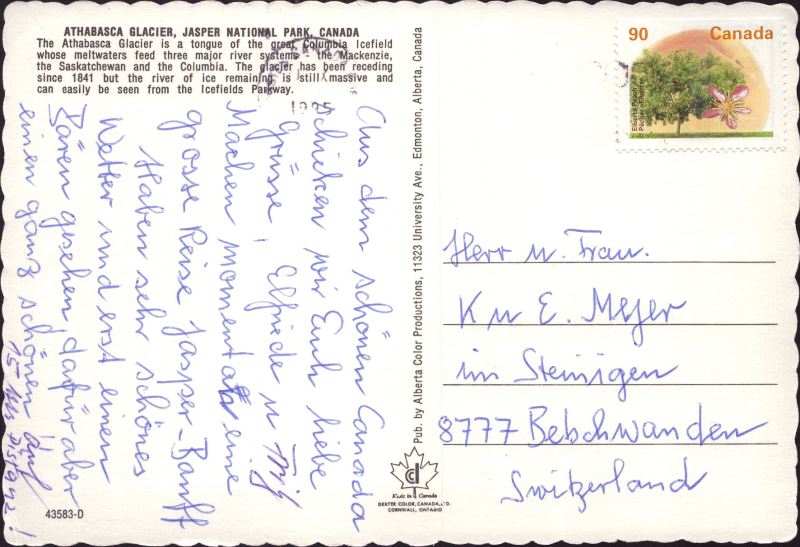 ATHABASCA GLACIER, JASPER NATIONAL PARK, CANADA
The Athabasca Glacier is a tongue of the great Columbia Icefield
whose meltwaters feed three major river systems - the Mackenzie,
the Saskatchewan and the Columbia. The glacier has been receding
since 1841 but the river of ice remaining is still massive and
can easily be seen from the Icefields Parkway.
1995
Aus dem schönen Canada
schicken wir Euch liebe
Grüsse, Elfriede u
Machen momentan eine
grosse Reise Jasper-Banff
Haben sehr schönes
Wetter und erst einen
Bären gesehen, dafür aber
einen ganz schönen
15 Mts Distanz!
43583-D
Pub. by Alberta Color Productions, 11323 University Ave., Edmonton, Alberta, Canada
Made in Canada
DEXTER COLOR, CANADA, LTD.
CORNWALL, ONTARIO
90 Canada
Elberta Peach
Pêcher «Elberta»
Herr u. Frau.
K u E. Mejer
im Steinigen
8777 Betschwanden
Switzerland